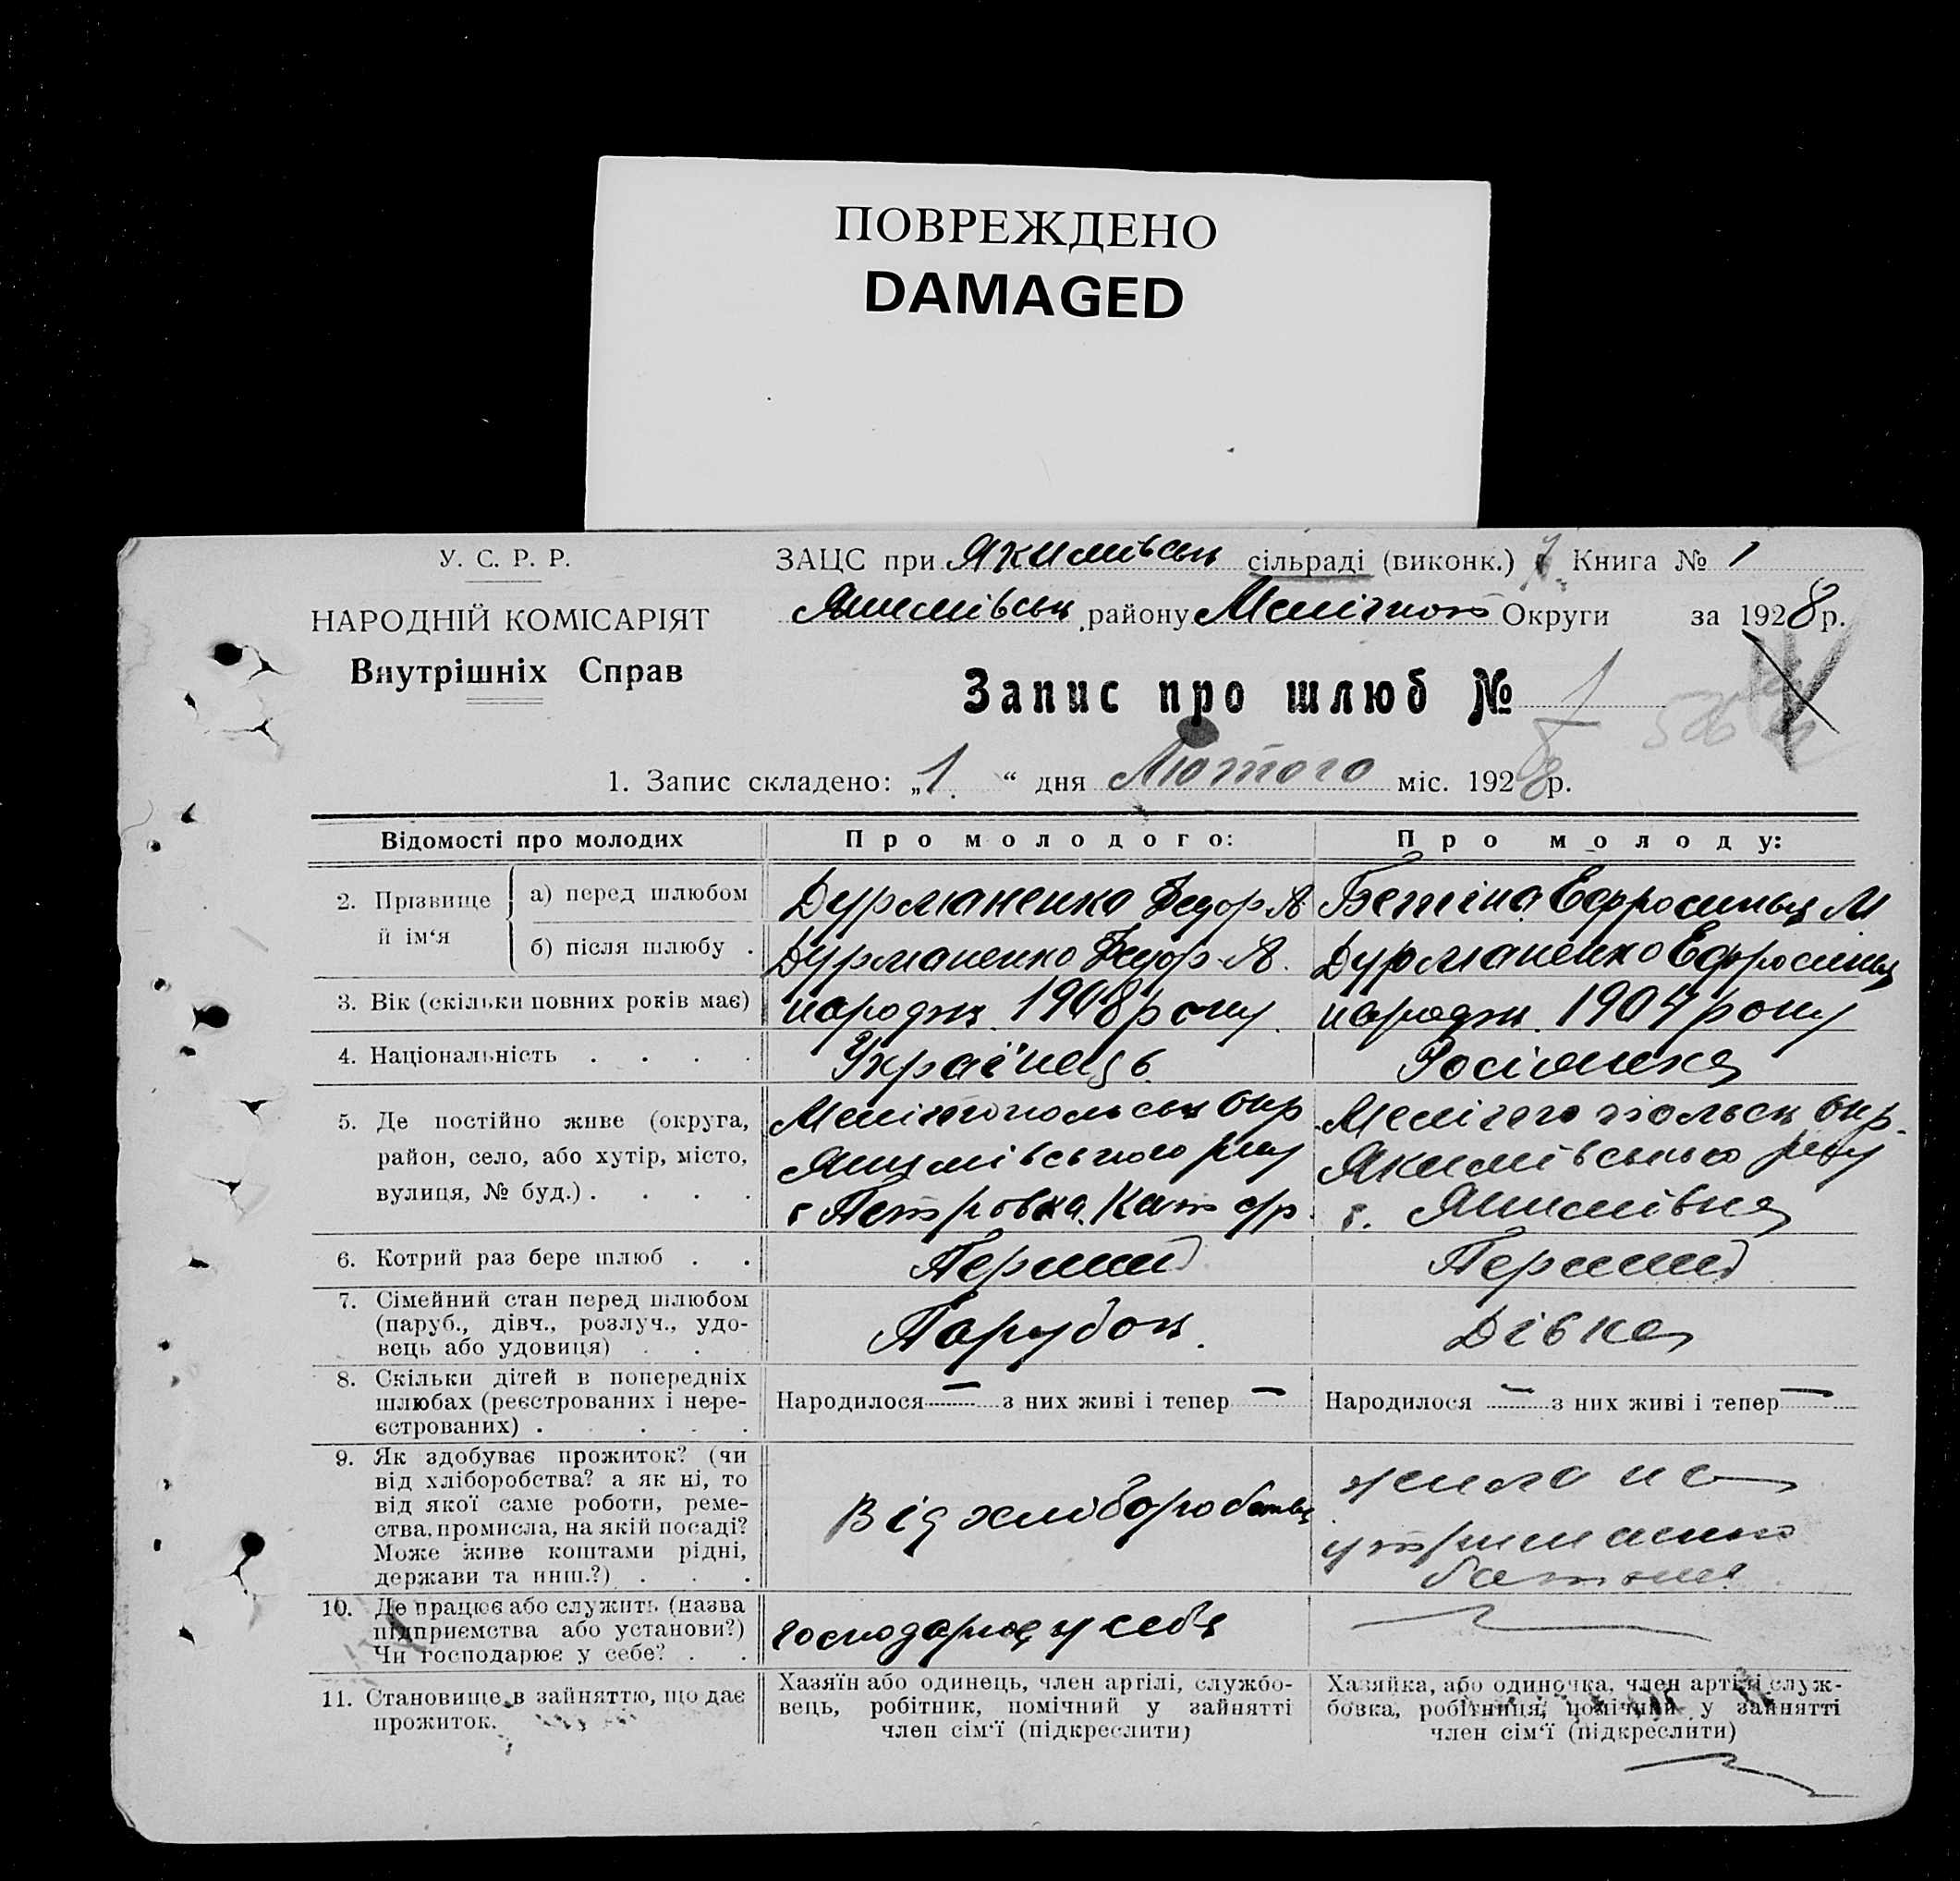 ПОВРЕЖДЕНО
DAMAGED
У. С. Р. Р.
НАРОДНІЙ КОМІСАРІЯТ
Внутрішніх Справ
ЗАЦС при Якимівськ сільраді (виконк.) Книга № 1
Якимівськ району Меліtпол Округи за 1928 р.
Запис про шлюб № 1
1. Запис складено: „1“ дня Лютого міс. 1928 р.
Відомості про молодих Про молодого: Про молоду:
2. Прізвище й ім‘я
а) перед шлюбом Дурманенко Федор А Бетіна Ефросинья М
б) після шлюбу . Дурманенко Федор А. Дурманенко Ефросинья
3. Вік (скільки повних років має) народж. 1908 року народж. 1904 року
4. Національність . . . . Українець Росіянка
5. Де постійно живе (округа, район, село, або хутір, місто, вулиця, № буд.) . . . .
Мелітопольськ Окр Якимівського р-ну с Петровка. Кат с/р.
Мелітопольськ Окр. Якимівського р-ну с. Якимівка
6. Котрий раз бере шлюб . . Перший Перший
7. Сімейний стан перед шлюбом
(паруб., дівч., розлуч., удо-
вець або удовиця) . . .
Парубок. Дівка
8. Скільки дітей в попередніх
шлюбах (реєстрованих і нере-
єстрованих) . . . . .
Народилося — з них живі і тепер — Народилося — з них живі і тепер —
9. Як здобуває прожиток? (чи
від хліборобства? а як ні, то
від якої саме роботи, реме-
ства, промисла, на якій посаді?
Може живе коштами рідні,
держави та инш.?) . . .
Від хліборобства
жила на
утриманню
батька
10. Де працює або служить (назва
підприємства або установи?)
Чи господарює у себе? . .
господарює у себе
11. Становище в зайняттю, що дає
прожиток.
Хазяїн або одинець, член артілі, службо-
вець, робітник, помічний у зайнятті
член сім‘ї (підкреслити)
Хазяйка, або одиночка, член артілі служ-
бовка, робітниця, помічний у зайнятті
член сім‘ї (підкреслити)